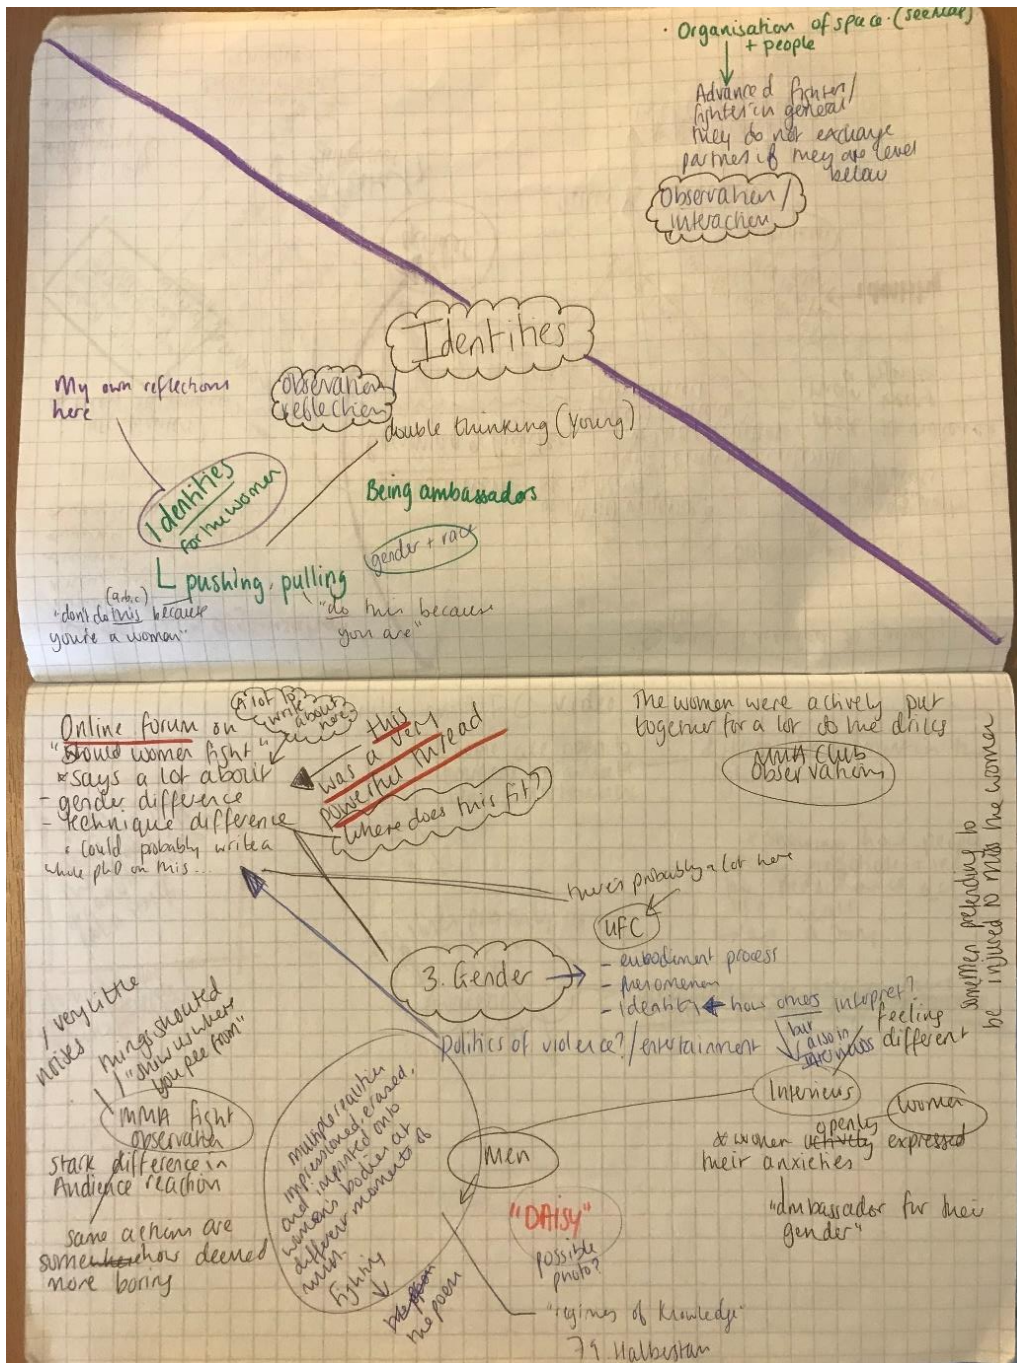 · Organisation of space. (see map)
+ people
Advanced fighter/
fighter in general
they do not exchange
partners if they are level
below
Observation /
interaction
Identities
My own reflections
here
Observation
reflection
double thinking (Young)
Identities
for the women
Being ambassadors
gender + race
pushing, pulling
(a,b,c)
"don't do this because
you're a woman"
"do this because
you are"
Online forum on
"should women fight"
* says a lot about
- gender difference
- technique difference
· Could probably write a
whole phD on this...
A lot to
write
about
here
this
was a very
powerful thread
Where does this fit?
The women were actively put
together for a lot do the drills
MMA CLUB
Observations
some men pretending to
be injured to miss the women
there's probably a lot here
UFC
3. Gender
- embodiment process
- phenomenon
- Identity
how others intepret?
also in
interviews
feeling
different
Politics of violence? / entertainment
Interviews
women
openly
* women actively expressed
their anxieties
"ambassador for their
gender"
very little
noises
things shouted
"show us where
you pee from"
MMA fight
observation
stark difference in
Audience reaction
same actions are
somewherehow deemed
more boring
multiple realities
impressioned, erased,
and imprinted onto
women's bodies at
different moments of
with
fighting
the poem
the poem
Men
"DAisy"
possible
photo?
"regimes of knowledge"
79 Halberstam